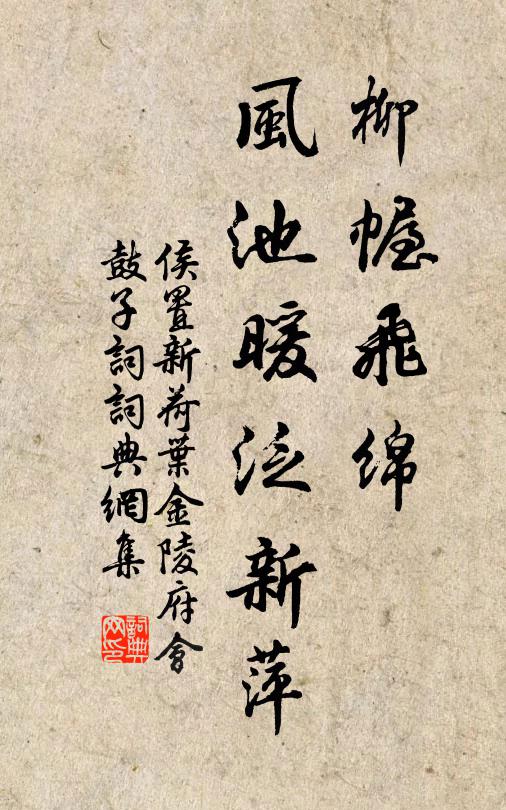 柳幄飛綿
風池暖泛新萍
侯置新荷葉金陵府會
鼓子詞詞典網集
詞典網印